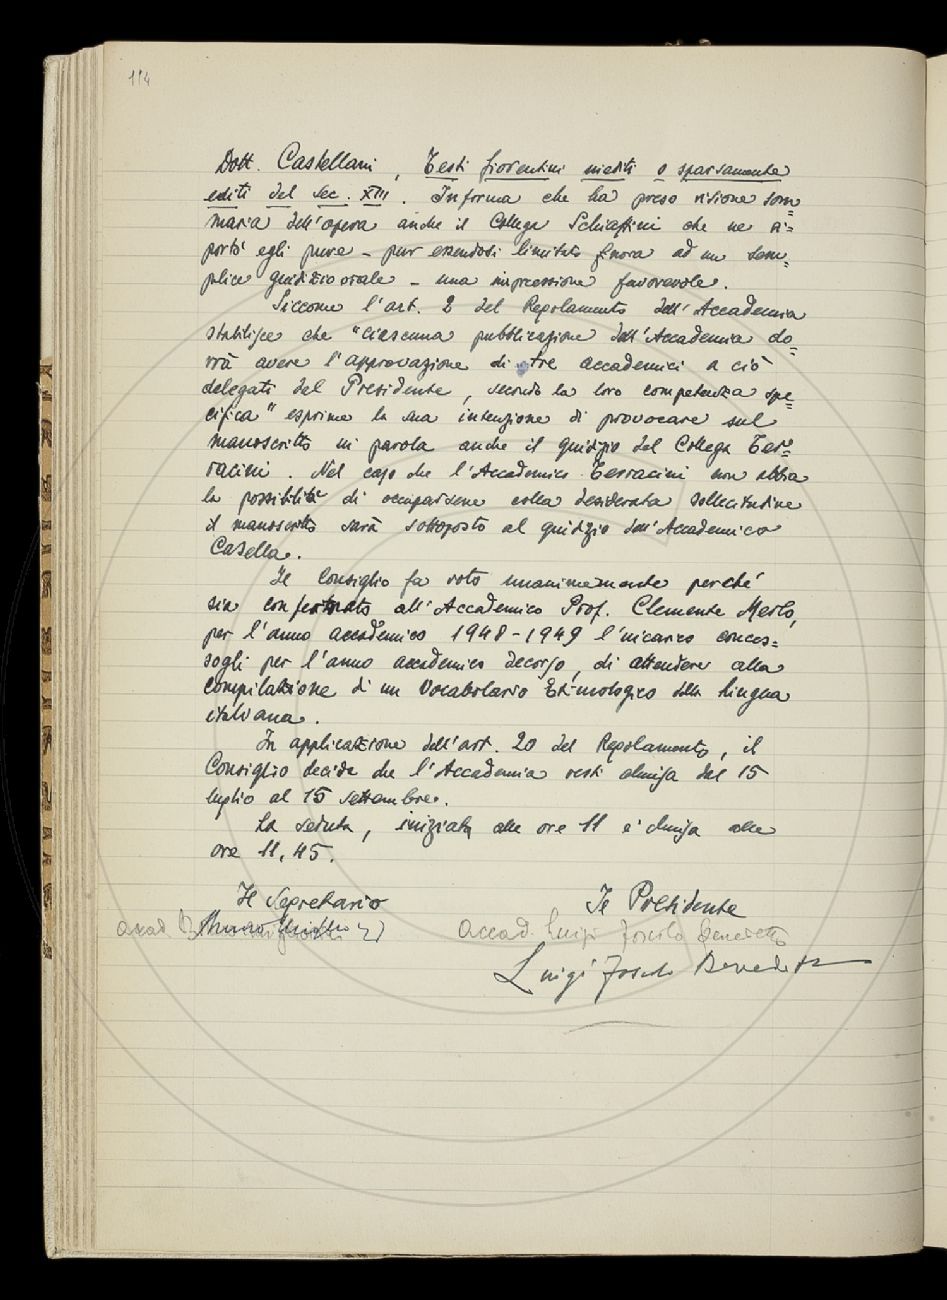 114
Dott. Castellani, Testi fiorentini inediti o sparsamente
editi del sec. XIII. Informa che ha preso visione som=
maria dell'opera anche il Collega Schiaffini che ne ri=
portò egli pure - pur essendosi limitato finora ad un sem=
plice giudizio orale - una impressione favorevole.
Siccome l'art. 2 del Regolamento dell'Accademia
stabilisce che "ciascuna pubblicazione dell'Accademia do=
vrà avere l'approvazione di tre accademici a ciò
delegati dal Presidente, secondo la loro competenza spe=
cifica" esprime la sua intenzione di provocare sul
manoscritto in parola anche il giudizio del Collega Ter=
racini. Nel caso che l'Accademico Terracini non abbia
la possibilità di occuparsene colla desiderata sollecitudine
il manoscritto sarà sottoposto al giudizio dell'Accademico
Casella.
Il Consiglio fa voto unanimemente perché
sia confermato all'Accademico Prof. Clemente Merlo,
per l'anno accademico 1948-1949 l'incarico conces=
sogli per l'anno accademico decorso, di attendere alla
compilazione di un Vocabolario Etimologico della lingua
italiana.
In applicazione dell'art. 20 del Regolamento, il
Consiglio decide che l'Accademia resti chiusa dal 15
luglio al 15 settembre.
La seduta, iniziata alle ore 11 è chiusa alle
ore 11,45.
Il Segretario Il Presidente
accad. accad. Luigi Foscolo Benedetto
Luigi Foscolo Benedetto